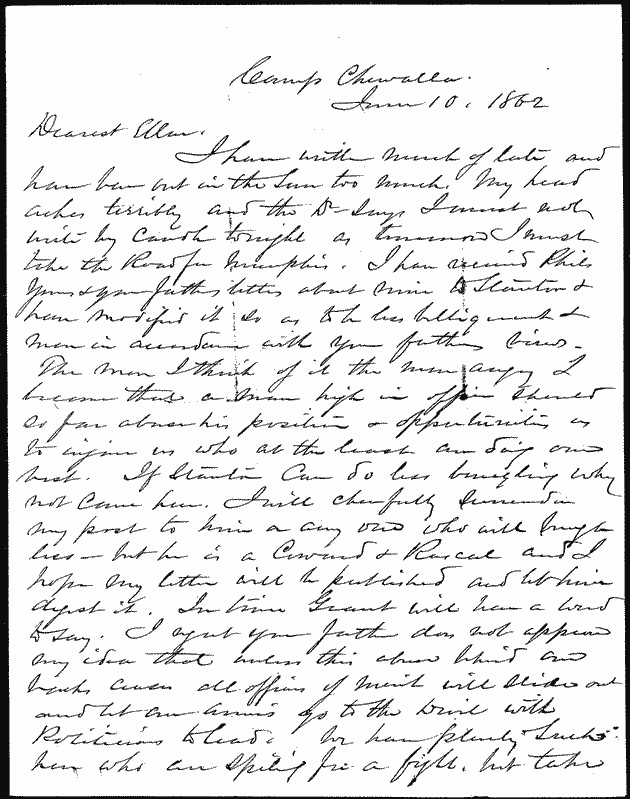 Camp Chewalla.
June 10, 1862
Dearest Ellen,
I have written much of late and
have been out in the Sun too much. My head
aches terribly and the Dr says I must not
write by candle tonight as tomorrow I must
take the Road for Memphis. I have received Phil's
yours & your fathers letters about mine to Stanton &
have modified it so as to be less belligerent &
more in accordance with your fathers views.
The more I think of it the more angry I
become that a man high in office should
so far abuse his position & opportunities as
to injure us who at the least are doing our
best. If Stanton can do less bungling why
not come here. I will cheerfully surrender
my post to him or any one who will bungle
less - but he is a Coward & Rascal and I
hope my letter will be published and let him
digest it. In time Grant will have a word
to say. I regret your father does not approve
my idea that unless this abuse behind our
backs ceases all officers of merit will slide out
and let our armies go to the Devil with
Politicians to lead. We have plenty such
here who are spoiling for a fight, but take